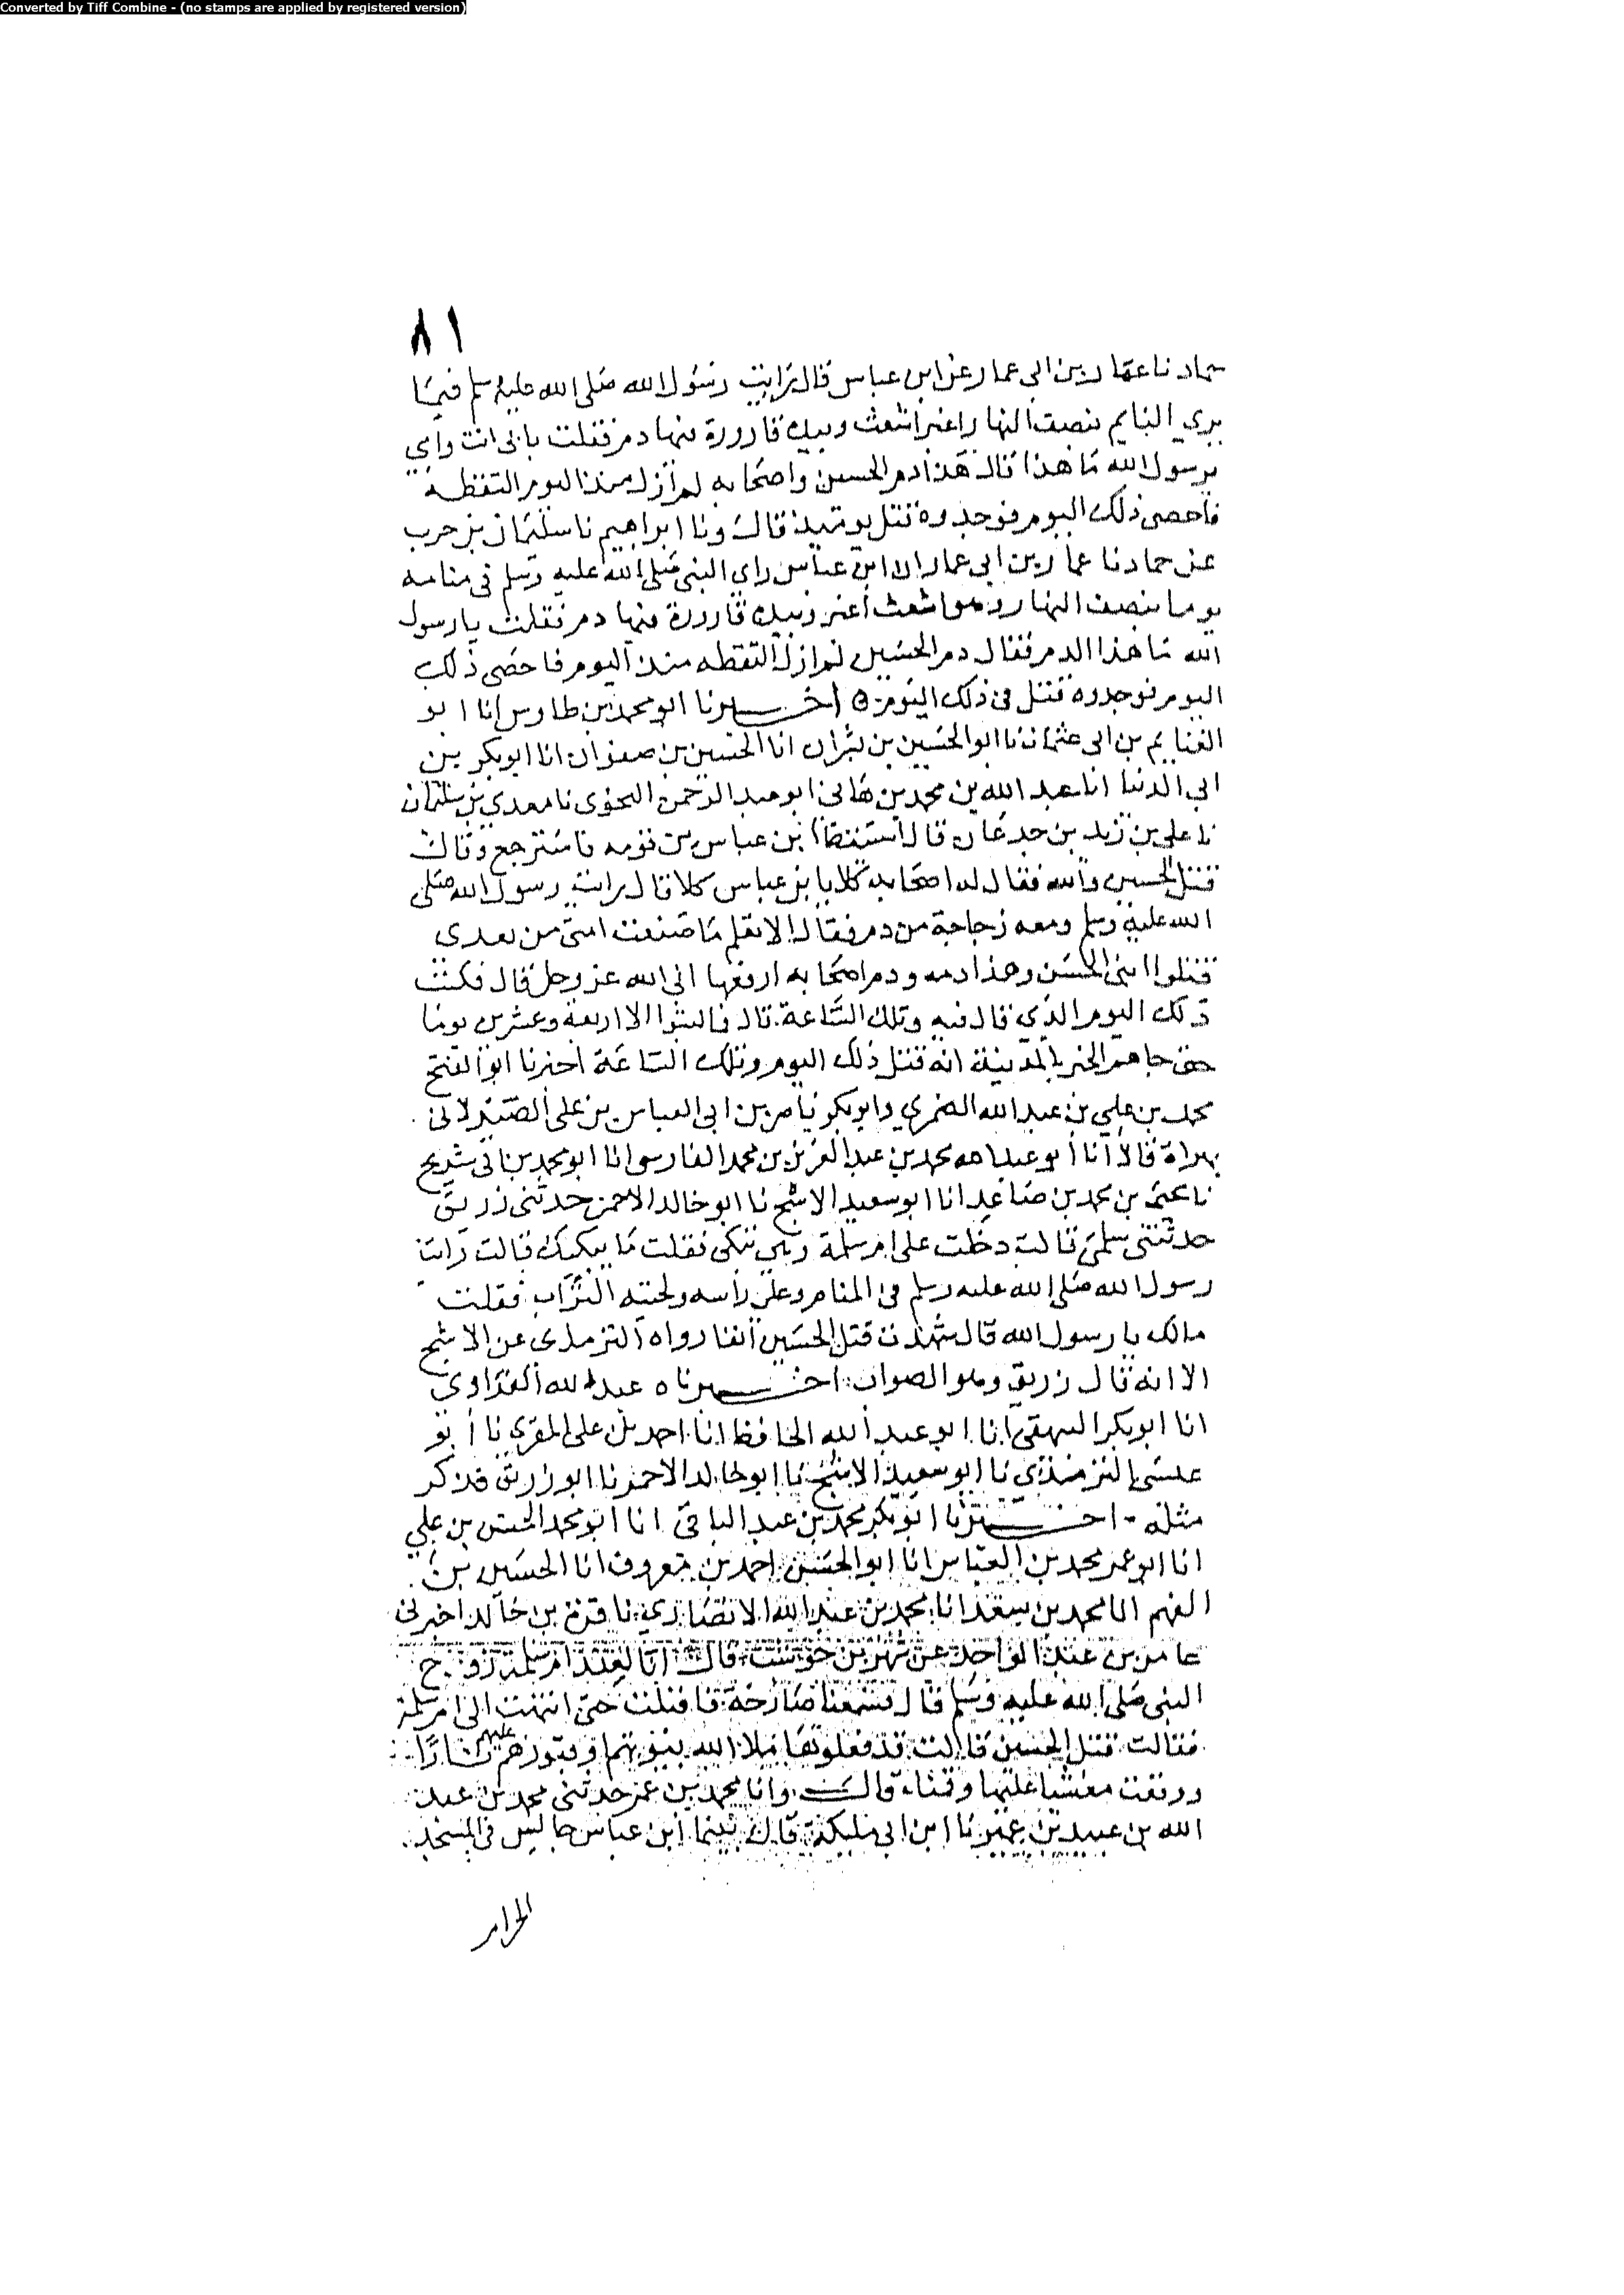 Converted by Tiff Combine - (no stamps are applied by registered version)
٨١
حماد نا عمار بن ابي عمار عن ابن عباس قال رايت رسول الله صلى الله عليه وسلم فيما
يرى النايم بنصف النهار اغبر اشعث وبيده قارورة فيها دم فقلت بابي انت وامي
يرسول الله ما هذا قال هذا دم الحسين واصحابه لم ازل منذ اليوم التقطه
فاحصى ذلك اليوم فوجدوه قتل يوميذ قال ونا ابراهيم نا سليمان بن حرب
عن حماد نا عمار بن ابي عمار ان ابن عباس راى النبي صلى الله عليه وسلم في منامه
يوما بنصف النهار وهو اشعث اغبر وبيده قارورة فيها دم فقلت يا رسول
الله ما هذا الدم فقال دم الحسين لم ازل التقطه منذ اليوم فاحصى ذلك
اليوم فوجدوه قتل في ذلك اليوم ه اخبرنا ابو محمد بن طاوس انا ابو
الغنايم بن ابي عثمان نا ابو الحسين بن بشران انا الحسين بن صفوان انا ابو بكر بن
ابي الدنيا انا عبد الله بن محمد بن هاني ابو عبد الرحمن النحوي نا معدي بن سليمان
نا علي بن زيد بن جدعان قال استيقظ ابن عباس من نومه فاسترجع وقال
قتل الحسين والله فقال له اصحابه كلا يا بن عباس كلا قال رايت رسول الله صلى
الله عليه وسلم ومعه زجاجة من دم فقال الا تعلم ما صنعت امتي من بعدي
قتلوا ابني الحسين وهذا دمه ودم اصحابه ارفعها الى الله عز وجل قال فكتب
ذلك اليوم الذي قال فيه وتلك الساعة قال فما لبثوا الا اربعة وعشرين يوما
حتى جاهم الخبر بالمدينة انه قتل ذلك اليوم وتلك الساعة اخبرنا ابو الفتح
محمد بن علي بن عبد الله المضري وابو بكر ناصر بن ابي العباس بن علي الصيدلاني
بهراة قالا انا ابو عبد الله محمد بن عبد العزيز بن محمد الفارسي انا ابو محمد بن ابي شريح
نا يحيى بن محمد بن صاعد انا ابو سعيد الاشج نا ابو خالد الاحمر حدثني زريق
حدثتني سلمى قالت دخلت على ام سلمة وهي تبكي فقلت ما يبكيك قالت رايت
رسول الله صلى الله عليه وسلم في المنام وعلى راسه ولحيته التراب فقلت
مالك يا رسول الله قال شهدت قتل الحسين انفا رواه الترمذي عن الاشج
الا انه قال رزيق وهو الصواب اخبرناه عبد الله الفراوي
انا ابو بكر البيهقي انا ابو عبد الله الحافظ انا احمد بن علي المقري نا ابو
عيسى الترمذي نا ابو سعيد الاشج نا ابو خالد الاحمر نا ابو زريق فذكر
مثله - اخبرنا ابو بكر محمد بن عبد الباقي انا ابو محمد الحسن بن علي
انا ابو عمر محمد بن العباس انا ابو الحسن احمد بن معروف انا الحسين بن
الفهم انا محمد بن سعد انا محمد بن عبد الله الانصاري نا قرة بن خالد اخبرني
عامر بن عبد الواحد عن شهر بن حوشب قال انا لعند ام سلمة زوج
النبي صلى الله عليه وسلم قال فسمعنا صارخة فاقبلت حتى انتهت الى ام سلمة
فقالت قتل الحسين قالت قد فعلوها ملا الله بيوتهم او قبورهم عليهم نارا
ووقعت مغشيا عليها وقمنا قال وانا محمد بن عمر حدثني محمد بن عبد
الله بن عبيد بن عمير نا ابن ابي مليكة قال بينما ابن عباس جالس في المسجد
الحرام